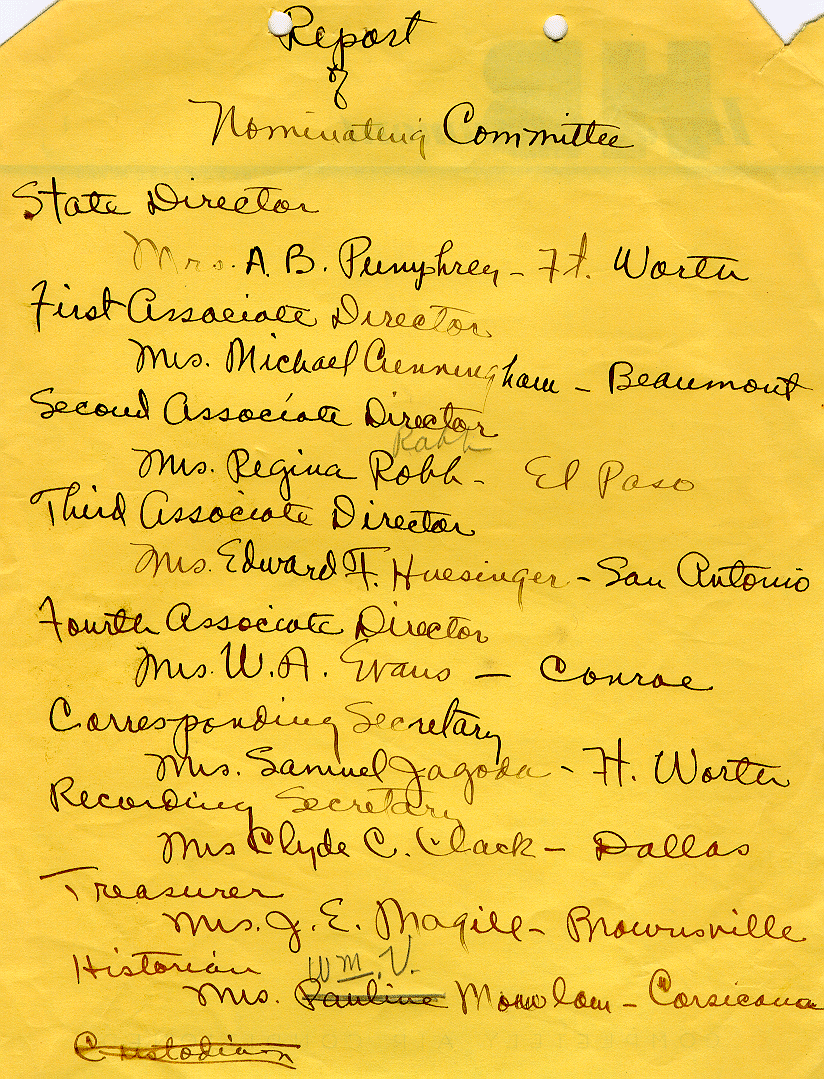 Report
of
Nominating Committee
State Director
Mrs. A. B. Pumphrey - Ft. Worth
First Associate Director
Mrs. Michael Cunningham - Beaumont
Second Associate Director
Rabb
Mrs. Regina Robb - El Paso
Third Associate Director
Mrs. Edward F. Huesinger - San Antonio
Fourth Associate Director
Mrs. W. A. Evans - Conroe
Corresponding Secretary
Mrs. Samuel Jagoda - Ft. Worth
Recording Secretary
Mrs Clyde C. Clack - Dallas
Treasurer
Mrs. J. E. Magill - Brownsville
Historian
Wm. V.
Mrs. Pauline - Corsicana
Custodian